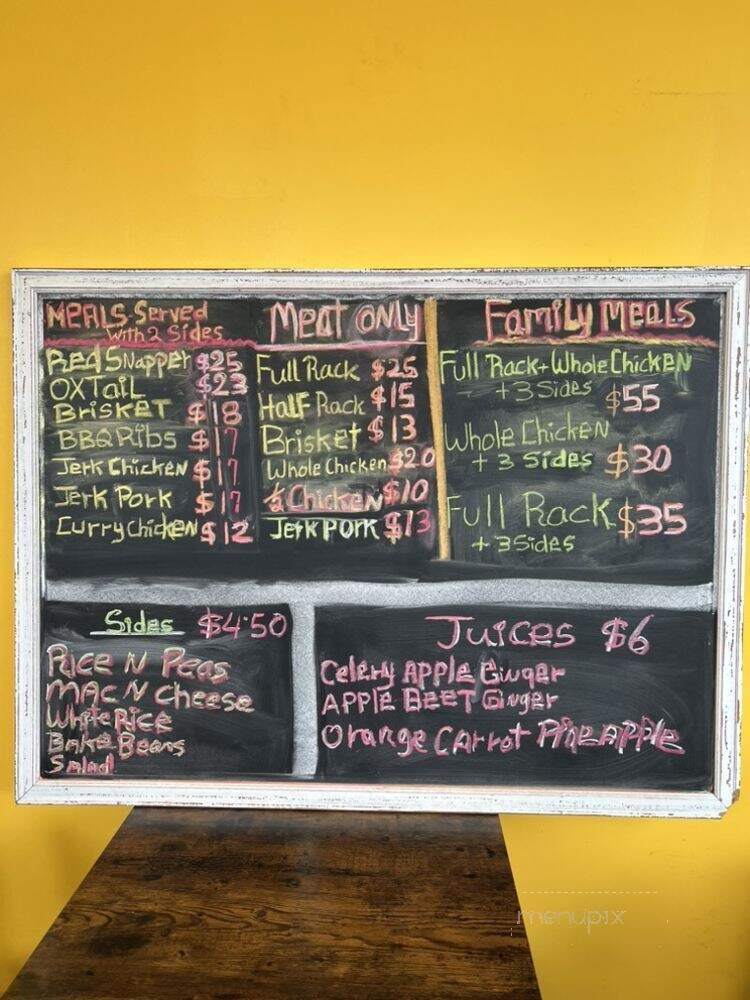 MEALS Served
With 2 Sides
Red Snapper $25
OXTail $23
BRisKET $18
BBQ Ribs $17
Jerk Chicken $17
Jerk Pork $17
Curry Chicken $12
Meat ONLY
Full Rack $25
Half Rack $15
Brisket $13
Whole Chicken $20
1/2 Chicken $10
Jerk Pork $13
Family Meals
Full Rack + Whole Chicken
+ 3 Sides $55
Whole Chicken
+ 3 Sides $30
Full Rack $35
+ 3 Sides
Sides $4.50
Rice N Peas
Mac N Cheese
White Rice
Bake Beans
Salad
Juices $6
Celery Apple Ginger
APPLE BEET Ginger
Orange Carrot PineApple
menupix